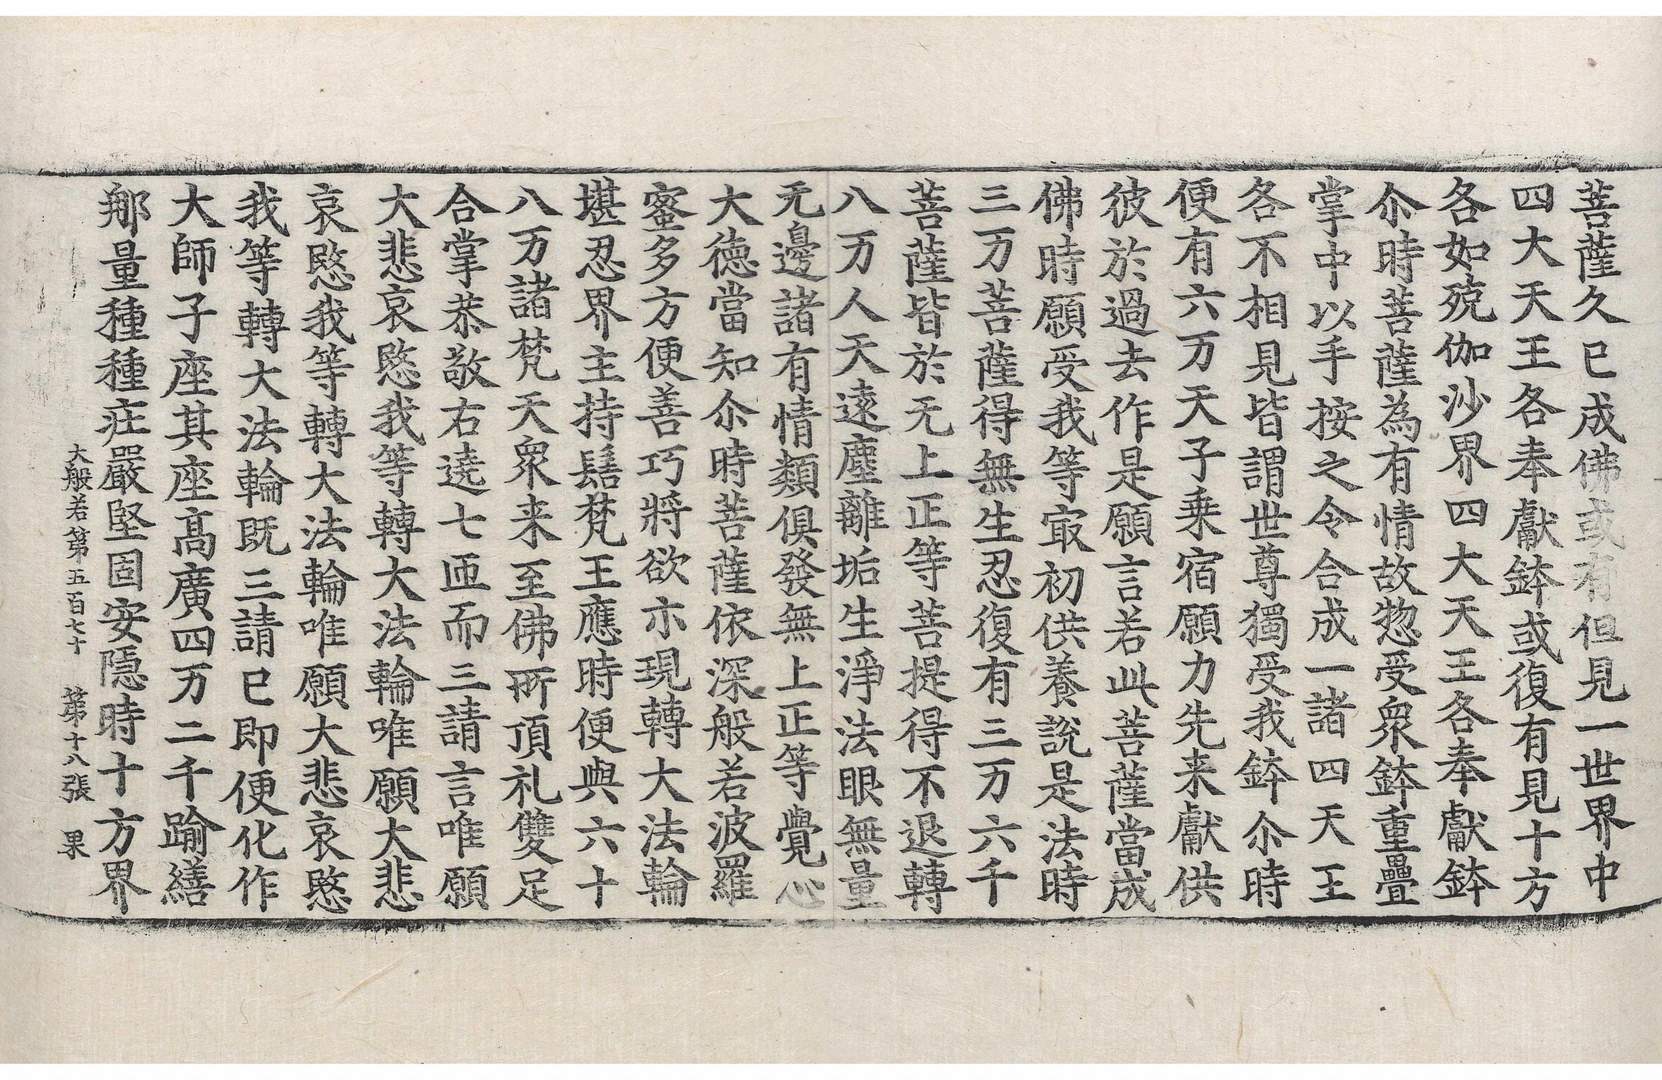 菩薩久已成佛或有但見一世界中
四大天王各奉獻鉢或復有見十方
各如殑伽沙界四大天王各奉獻鉢
尒時菩薩為有情故惣受眾鉢重疊
掌中以手按之令合成一諸四天王
各不相見皆謂世尊獨受我鉢尒時
便有六万天子乗宿願力先来獻供
彼於過去作是願言若此菩薩當成
佛時願受我等㝡初供養說是法時
三万菩薩得無生忍復有三万六千
菩薩皆於无上正等菩提得不退轉
八万人天遠塵離垢生淨法眼無量
无邊諸有情類俱發無上正等覺心
大德當知尒時菩薩依深般若波羅
蜜多方便善巧將欲亦現轉大法輪
堪忍界主持髻梵王應時便與六十
八万諸梵天眾来至佛所頂礼雙足
合掌恭敬右遶七匝而三請言唯願
大悲哀愍我等轉大法輪唯願大悲
哀愍我等轉大法輪唯願大悲哀愍
我等轉大法輪既三請已即便化作
大師子座其座高廣四万二千踰繕
那量種種庄嚴堅固安隱時十方界
大般若第五百七十 第十八張 果